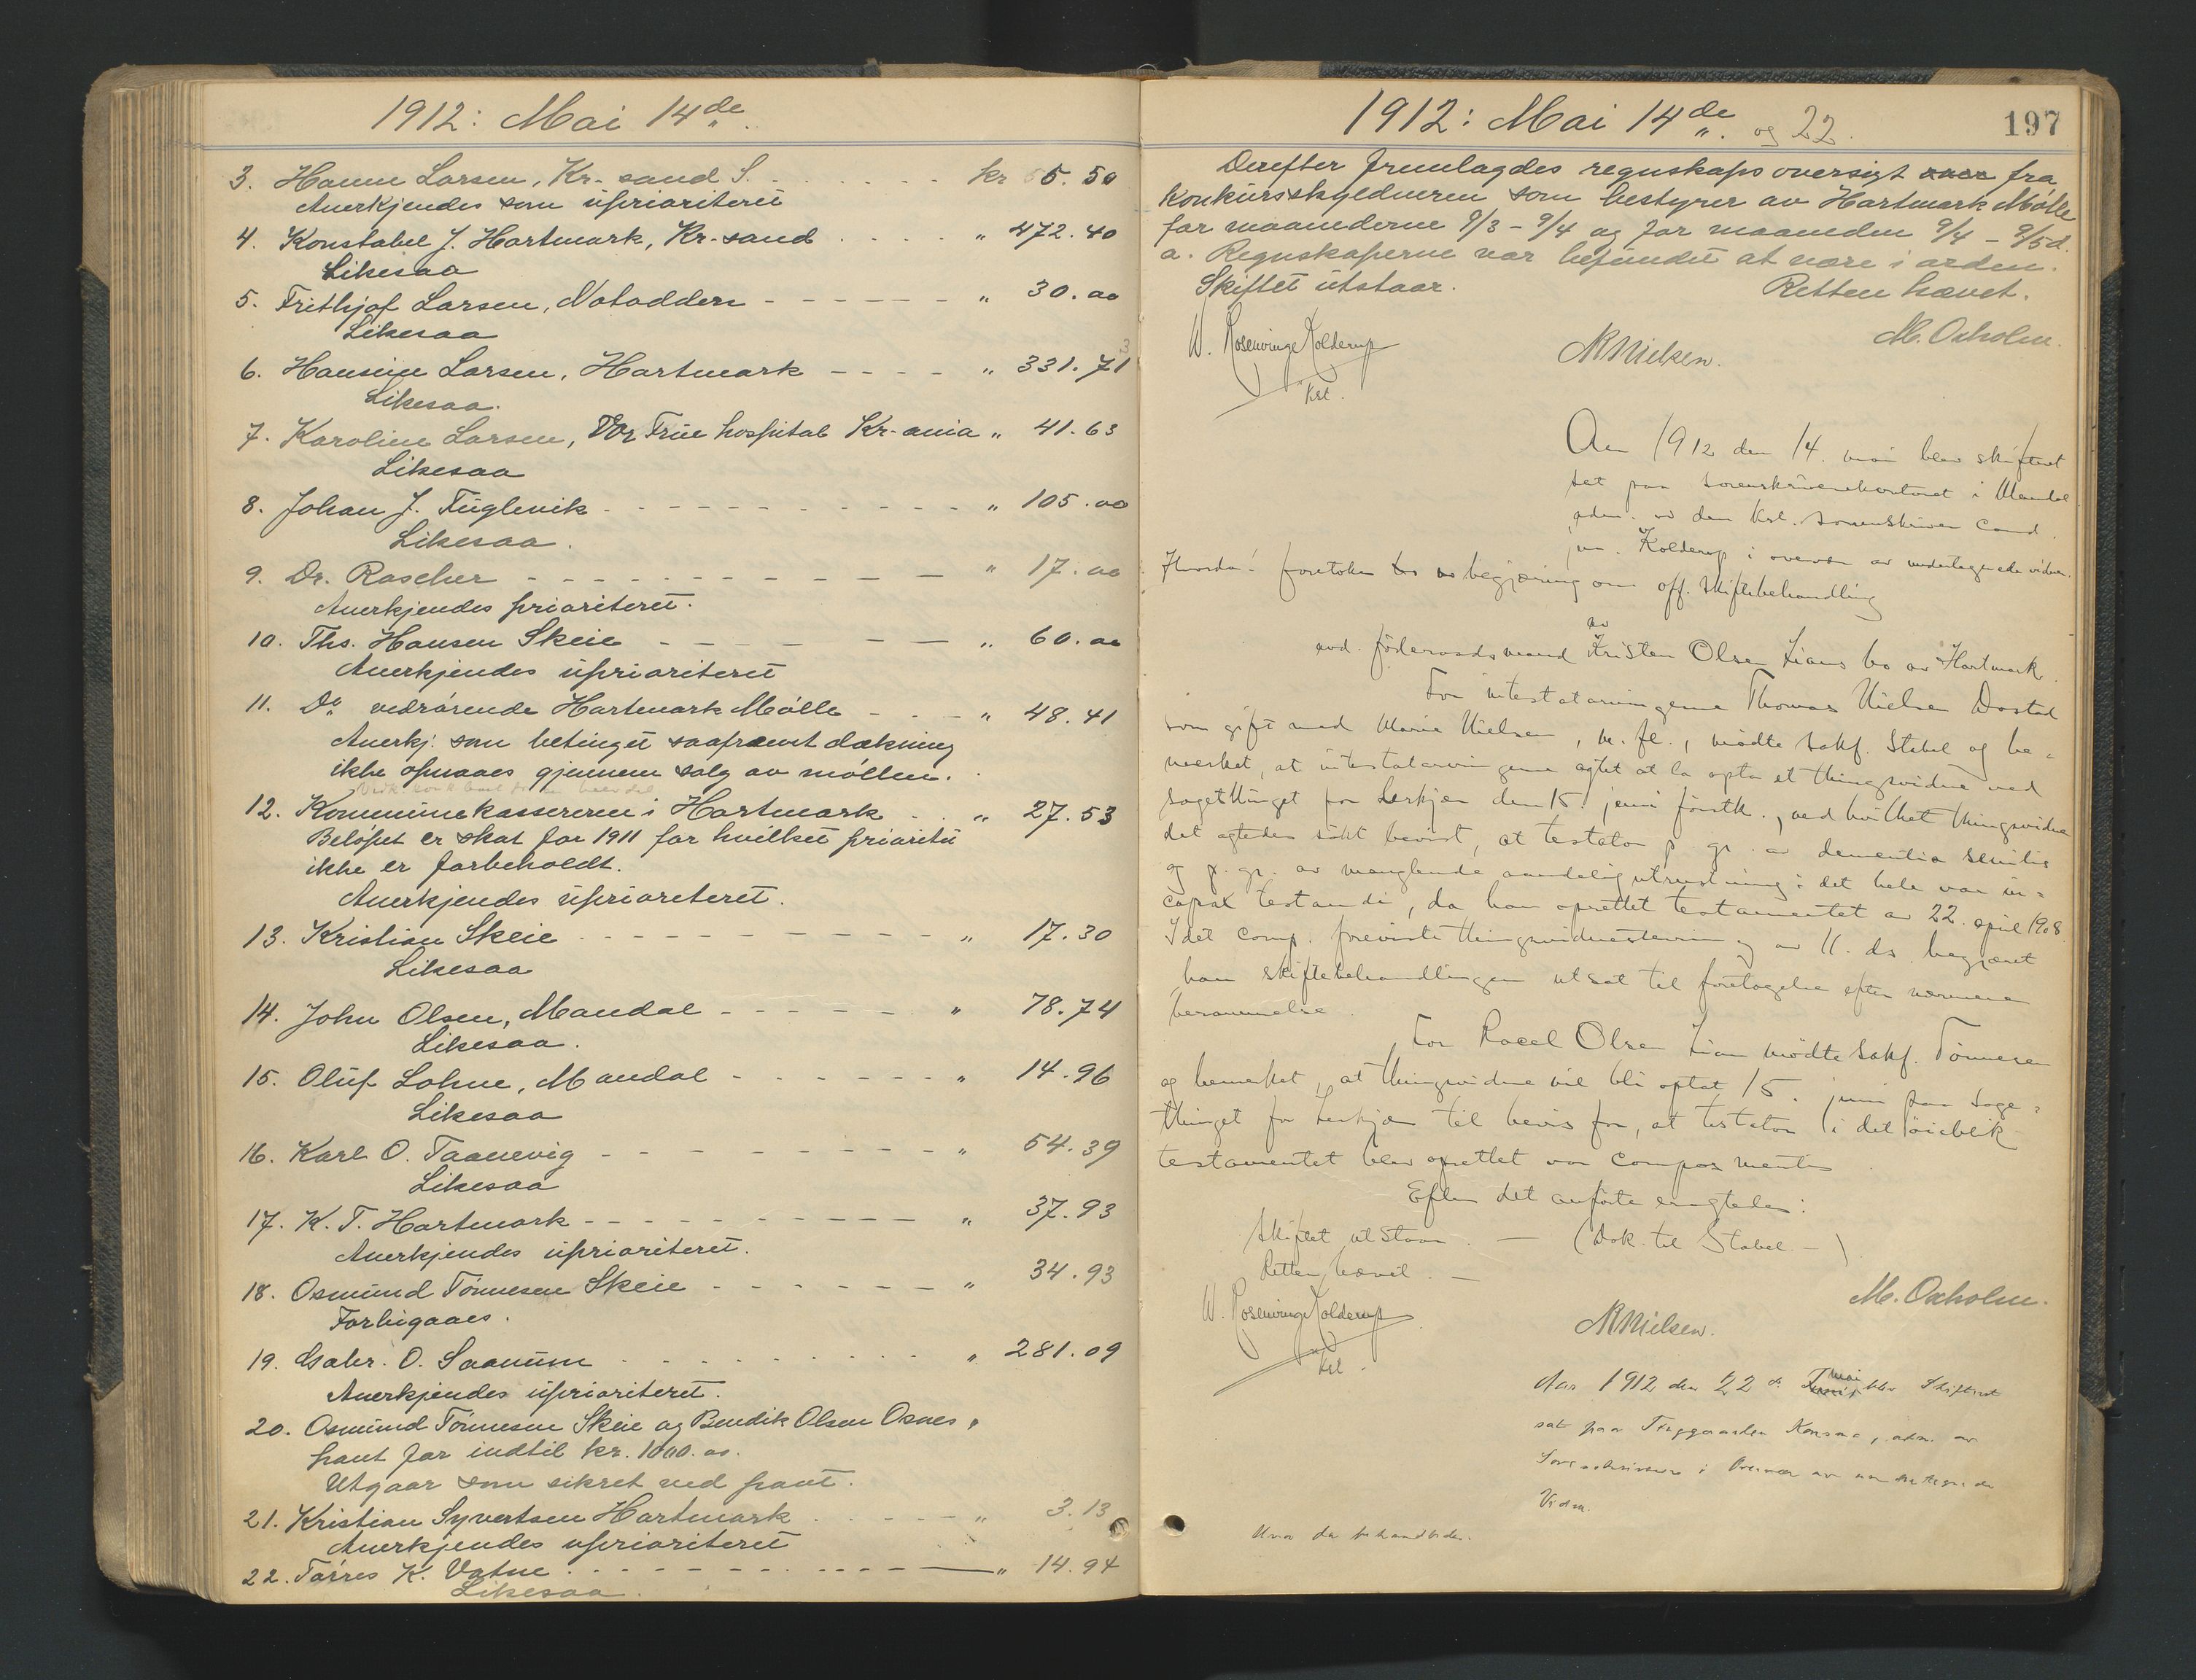 1912: Mai 14de
3. Hanne Larsen, Kr-sand S. - - - - - - kr 55.50
Anerkjendes som uprioriteret
4. Konstabel J. Hartmark, Kr-sand . . . . " 472.40
Likesaa
5. Frithjof Larsen, Notodden - - - - - - " 30.00
Likesaa
6. Hansine Larsen, Hartmark - - - - " 331.71
Likesaa.
7. Karoline Larsen, Vor Frue hospital Kr-ania " 41.63
Likesaa
8. Johan J. Fuglevik - - - - - - - - - - " 105.00
Likesaa.
9. Dr. Roscher - - - - - - - - - - " 17.00
Anerkjendes prioriteret.
10. Ths. Hansen Skeie - - - - - - " 60.00
Anerkjendes uprioriteret
11. Do vedrørende Hartmark Mølle - - - " 48.41
Anerkj. som betinget saafremt dækning
ikke opnaaes gjennem salg av møllen.
12. Kommunekassereren i Hartmark . . " 27.53
Beløpet er skat for 1911 for hvilket prioritet
ikke er forbeholdt.
Anerkjendes uprioriteret.
13. Kristian Skeie - - - - - - - - - - " 17.30
Likesaa
14. John Olsen, Mandal - - - - - - " 78.74
Likesaa.
15. Oluf Lohne, Mandal - - - - - - " 14.96
Likesaa
16. Karl O. Taanevig - - - - - - - - - " 54.39
Likesaa
17. K. T. Hartmark - - - - - - - - - " 37.93
Anerkjendes uprioriteret.
18. Osmund Tønnesen Skeie - - - - - - " 34.93
Forbigaaes.
19. Gabr. O. Saanum . . . . . . . . . " 281.09
Anerkjendes uprioriteret.
20. Osmund Tønnesen Skeie og Bendik Olsen Osnes "
pant for indtil kr. 1000.00.
Utgaar som sikret ved pant.
21. Kristian Syvertsen Hartmark . . . - - - " 3.13
Anerkjendes uprioriteret
22. Tørres K. Vatne . - - - - - - - - " 14.94
Likesaa.
1912: Mai 14de og 22. 197
Derefter fremlagdes regnskapsoversigt fra
konkursskyldneren som bestyrer av Hartmark Mølle
for maanederne 9/3 - 9/4 og for maaneden 9/4 - 9/5 d.
a. Regnskaperne var befundet at være i orden.
Skiftet utstaar. Retten hævet.
W. Rosenvinge Kolderup M. Oxholm.
kst. N Nielsen.
Aar 1912 den 14. mai blev skifteret
sat paa sorenskriverkontoret i Mandal
adm. av den kst. sorenskriver cand.
jur. Kolderup i overvær av undertegnede vidner.
Hvorda: foretokes begjæring om off. skiftebehandling
av
avd. föderaadsmand Kristen Olsen Lians bo av Hartmark.
For intestatarvingerne Thomas Nielsen
som gift med Marie Nielsen, m. fl., mødte sakf. Stabel og be=
merket, at intestatarvingerne agtet at la opta et thingsvidne ved
sagetthinget for Lerkjær den 15. juni førstk., ved hvilket thingsvidne
det agtedes søkt bevist, at testator p. gr. av dementia senilis
og p. gr. av manglende aandelig utrustning i det hele var in=
capax testandi, da han oprettet testamentet av 22. april 1908.
Idet comp. foreviste thingsvidnestevning av 11. ds. begjæret
han skiftebehandlingen utsat til foretagelse efter nærmere
berammelse.
For Racel Olsen Lian mødte sakf. Tønnesen
og bemerket, at thingsvidne vil bli optat 15. juni paa sage=
thinget for Lerkjær til bevis for, at testator i det øieblik
testamentet blev oprettet var compos mentis.
Efter det anførte eragtedes:
Skiftet utstaar. — (Dok. til Stabel. —)
Retten hævet. —
W. Rosenvinge Kolderup M. Oxholm.
kst. N Nielsen.
Aar 1912 den 22 de mai blev Skifteret
sat paa Konsmo, adm. av
Sorenskriveren i Overvær av undertegnede
Vidner.
Hvor da behandledes.